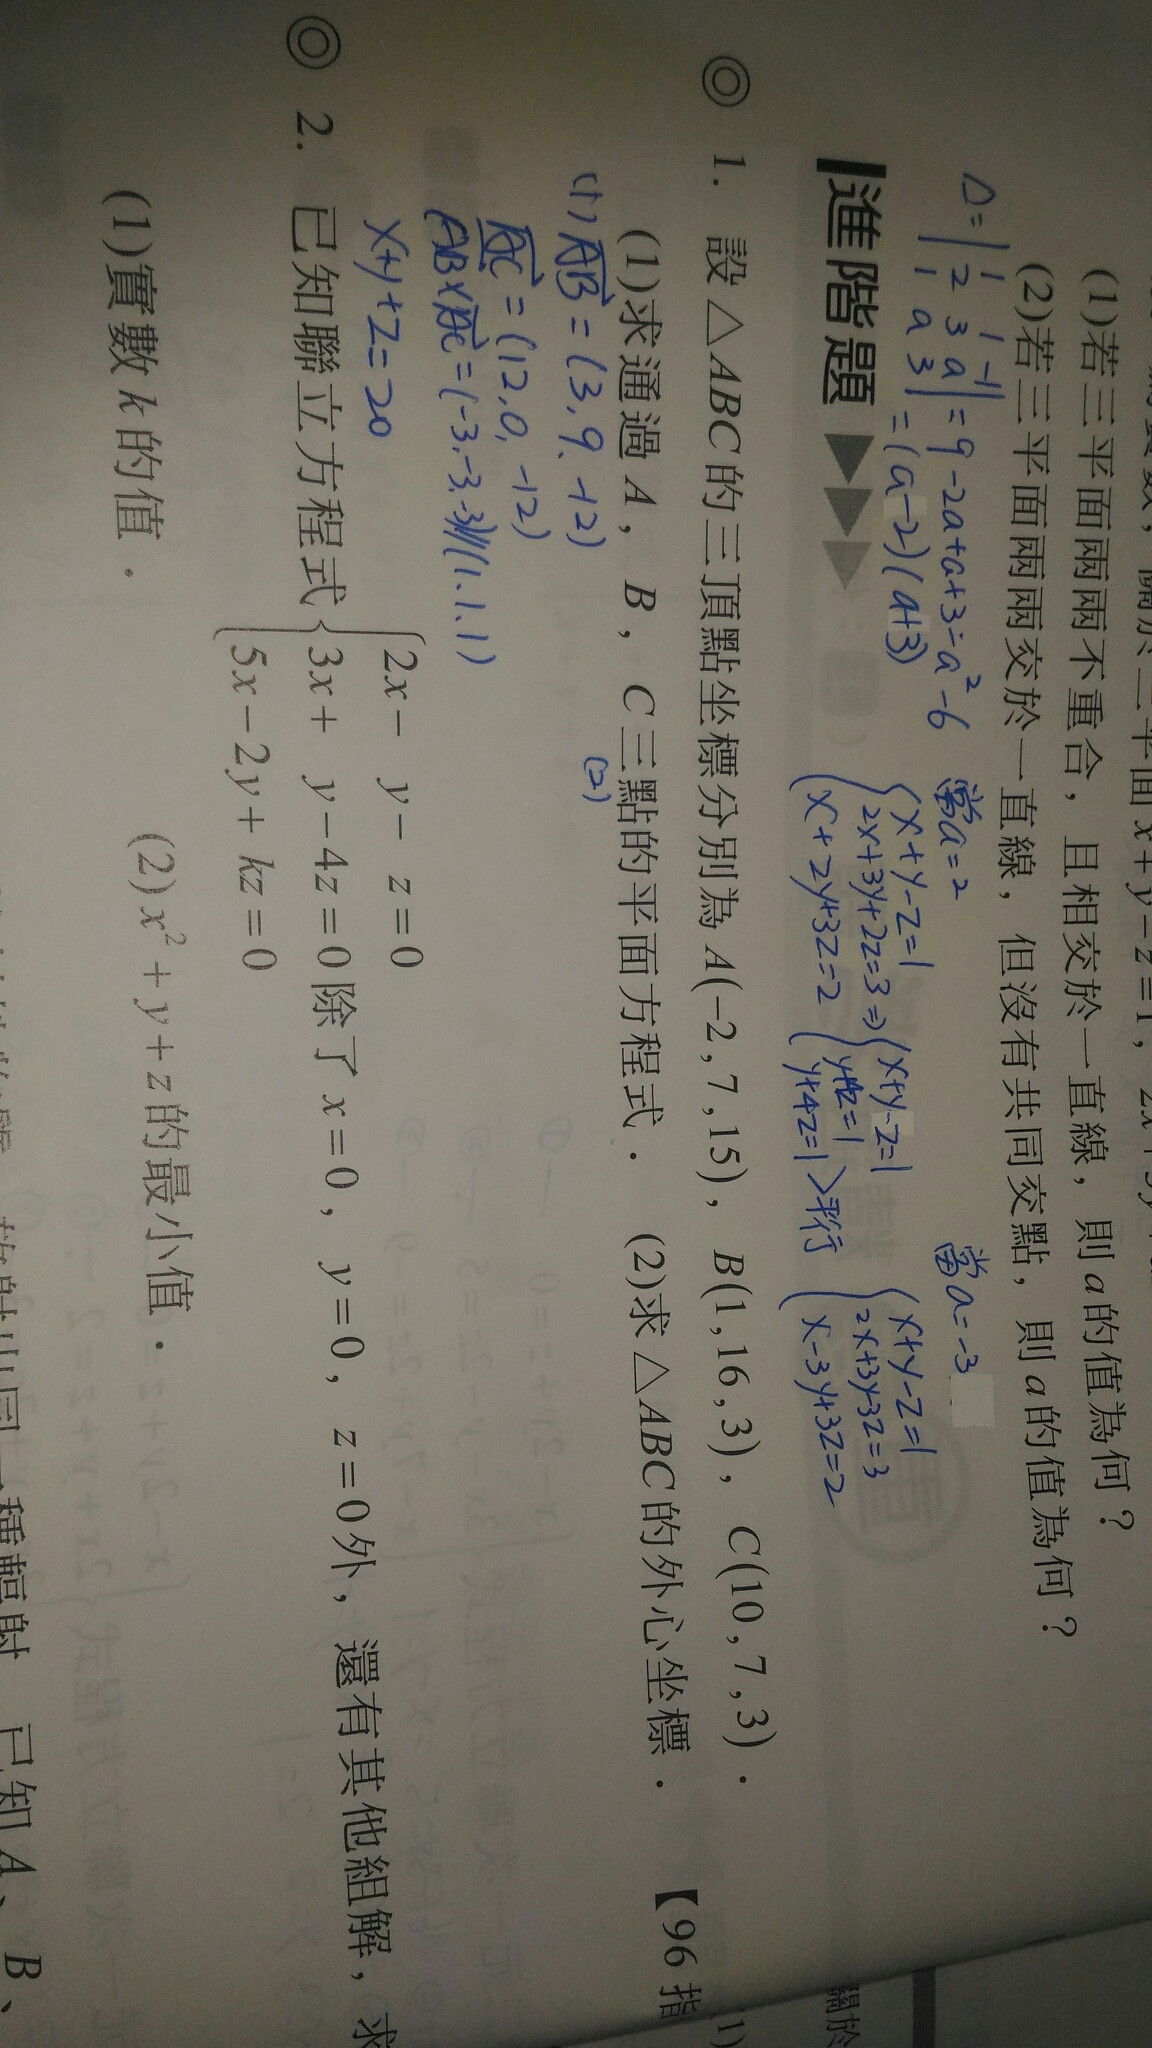 面 x+y-z=1,
(1)若三平面兩兩不重合，且相交於一直線，則 a 的值為何？
(2)若三平面兩兩交於一直線，但沒有共同交點，則 a 的值為何？
Δ=|1 1 -1
2 3 a
1 a 3| =9-2a+a+3-a²-6
=(a-2)(a+3)
當a=2
{x+y-z=1
2x+3y+2z=3
x+2y+3z=2
⇒{x+y-z=1
y+4z=1
y+4z=1 >平行
當a=-3
{x+y-z=1
2x+3y-3z=3
x-3y+3z=2
進階題
◎ 1. 設△ABC的三頂點坐標分別為 A(-2,7,15)，B(1,16,3)，C(10,7,3)．
(1)求通過 A，B，C三點的平面方程式． (2)求△ABC的外心坐標． 【96指
(1) AB=(3,9,-12)
AC=(12,0,-12)
AB×AC=(-3,-3,-3)//(1,1,1)
x+y+z=20
(2)
◎ 2. 已知聯立方程式{2x- y- z=0
3x+ y-4z=0
5x-2y+ kz=0
除了 x=0，y=0，z=0外，還有其他組解，求
(1)實數 k 的值． (2) x²+y+z的最小值．
同一種輻射
已知 A、B、
關於
(1)